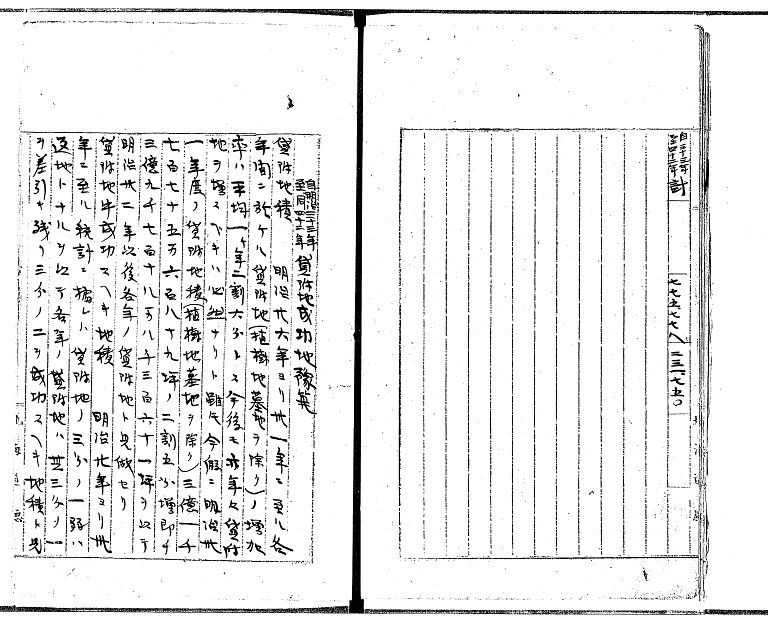 自三十三年
至四十二年 計 七七五七七八 二三一七五〇
自明治三十三年
至同四十二年 貸附地成功地豫算
貸附地積 明治廿六年ヨリ卅一年ニ至ル各
年間ニ於ケル貸附地(植樹地墓地ヲ除ク)ノ増加
率ハ平均一ケ年二割六分トス今後モ亦年々貸附
地ヲ増スヘキハ必然ナリト雖モ今假ニ明治卅
一年度ノ貸附地積(植樹地墓地ヲ除ク)三億一千
七百七十五万六百八十九坪ノ二割五分増即チ
三億九千七百十八万八千三百六十一坪ヲ以テ
明治卅二年以後各年ノ貸附地ト見做セリ
貸附地中成功スヘキ地積 明治廿年ヨリ卅
年ニ至ル統計ニ據レハ貸附地ノ三分ノ一弱ハ
返地トナルヲ以テ各年ノ貸附地ハ其三分ノ一
ヲ差引キ残リ三分ノ二ヲ成功スヘキ地積ト見
北海道廳